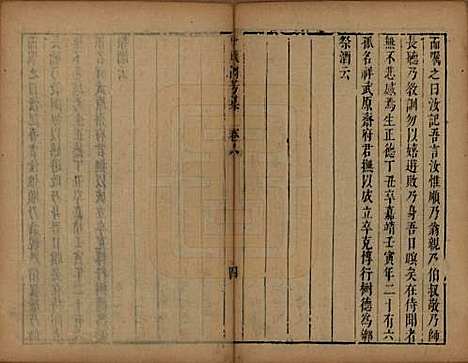 而嘱之曰汝記吾言汝惟順乃翁親乃伯叔敬乃師
長聴乃敎訓勿以嬉遊敗乃身吾目瞑矣在侍聞者
無不悲感焉生正德丁丑卒嘉靖壬寅年二十有六
孤名祥武原齋府君撫以成立卒克惇行樹德為鄉
祭酒云
卷之六
四